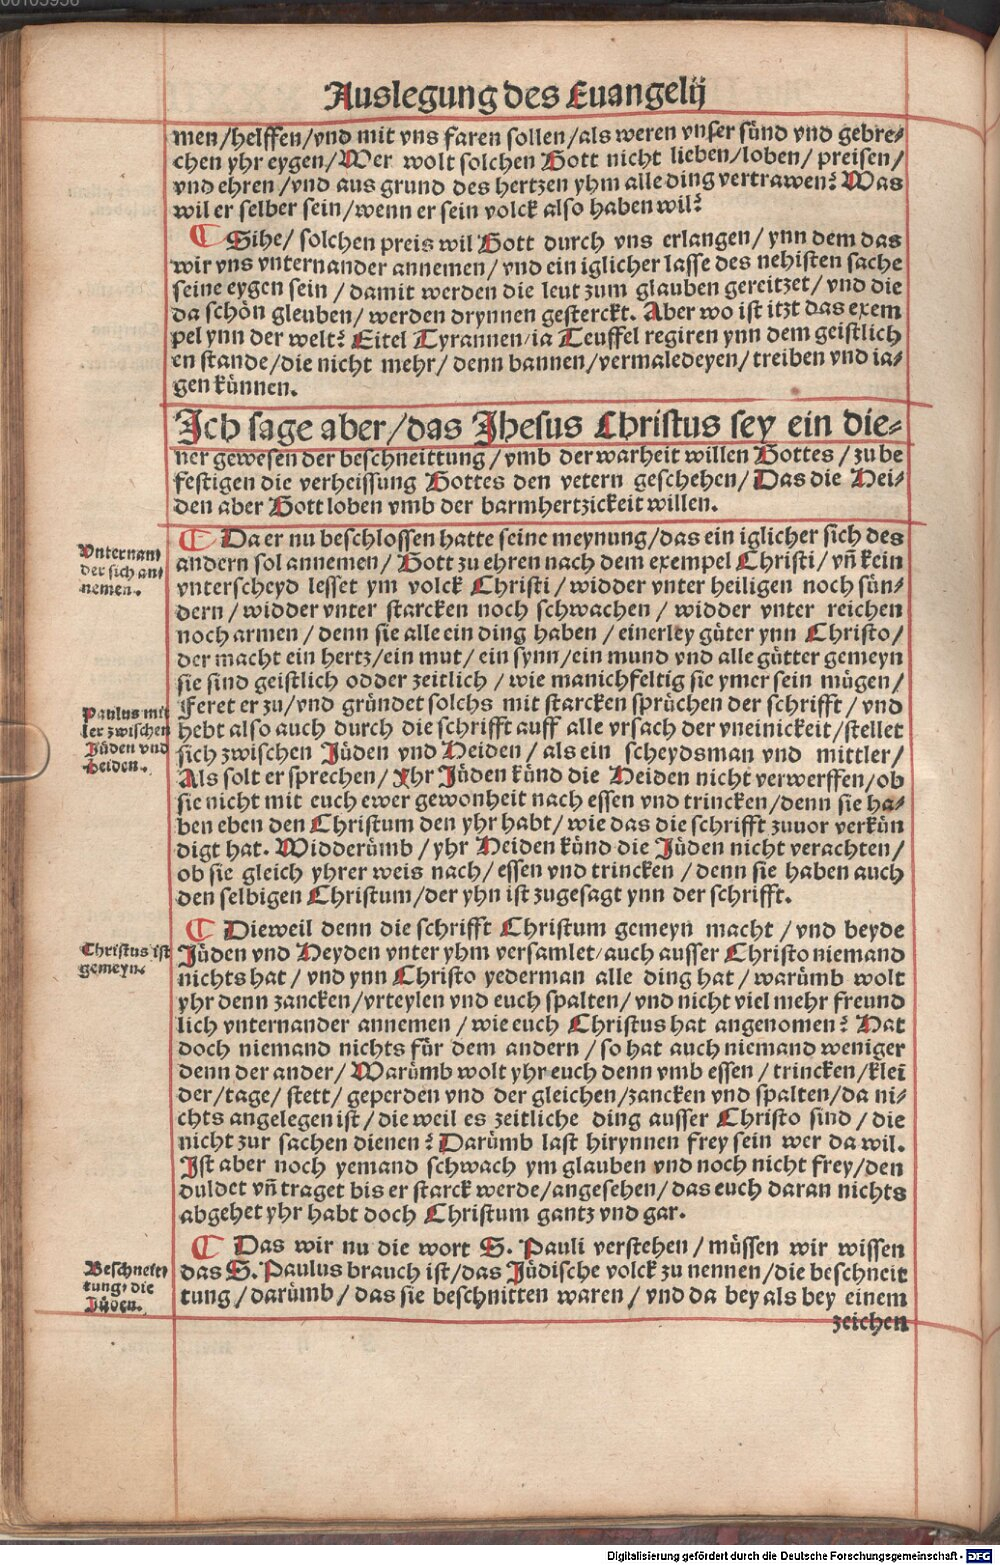 Auslegung des Euangelij
men/helffen/vnd mit vns faren sollen/als weren vnser sünd vnd gebre-
chen yhr eygen/Wer wolt solchen Gott nicht lieben/loben/preisen/
vnd ehren/vnd aus grund des hertzen yhm alle ding vertrawen? Was
wil er selber sein/wenn er sein volck also haben wil?
¶ Sihe/ solchen preis wil Gott durch vns erlangen/ ynn dem das
wir vns vnternander annemen/vnd ein iglicher lasse des nehisten sache
seine eygen sein/damit werden die leut zum glauben gereitzet/vnd die
da schön gleuben/werden drynnen gesterckt. Aber wo ist itzt das exem
pel ynn der welt? Eitel Tyrannen/ia Teuffel regiren ynn dem geistlich
en stande/die nicht mehr/denn bannen/vermaledeyen/treiben vnd ia-
gen künnen.
Ich sage aber/das Jhesus Christus sey ein die-
ner gewesen der beschneittung/vmb der warheit willen Gottes/zu be
festigen die verheissung Gottes den vetern geschehen/Das die Hei-
den aber Gott loben vmb der barmhertzickeit willen.
Vnternan-
der sich an-
nemen.
¶ Da er nu beschlossen hatte seine meynung/das ein iglicher sich des
andern sol annemen/Gott zu ehren nach dem exempel Christi/vn̄ kein
vnterscheyd lesset ym volck Christi/widder vnter heiligen noch sün-
dern/widder vnter starcken noch schwachen/widder vnter reichen
noch armen/denn sie alle ein ding haben/einerley güter ynn Christo/
der macht ein hertz/ein mut/ein synn/ein mund vnd alle gütter gemeyn
sie sind geistlich odder zeitlich/wie manichfeltig sie ymer sein mügen/
Feret er zu/vnd gründet solchs mit starcken sprüchen der schrifft/vnd
hebt also auch durch die schrifft auff alle vrsach der vneinickeit/stellet
sich zwischen Jüden vnd Heiden/als ein scheydsman vnd mittler/
Als solt er sprechen/Yhr Jüden künd die Heiden nicht verwerffen/ob
sie nicht mit euch ewer gewonheit nach essen vnd trincken/denn sie ha-
ben eben den Christum den yhr habt/wie das die schrifft zuuor verkün
digt hat. Widderümb/yhr Heiden künd die Jüden nicht verachten/
ob sie gleich yhrer weis nach/essen vnd trincken/denn sie haben auch
den selbigen Christum/der yhn ist zugesagt ynn der schrifft.
Paulus mit
ler zwischen
Jüden vnd
Heiden.
¶ Dieweil denn die schrifft Christum gemeyn macht/vnd beyde
Jüden vnd Heyden vnter yhm versamlet/auch ausser Christo niemand
nichts hat/vnd ynn Christo yederman alle ding hat/warümb wolt
yhr denn zancken/vrteylen vnd euch spalten/vnd nicht viel mehr freund
lich vnternander annemen/wie euch Christus hat angenomen? Hat
doch niemand nichts für dem andern/so hat auch niemand weniger
denn der ander/Warümb wolt yhr euch denn vmb essen/trincken/klei
der/tage/stett/geperden vnd der gleichen/zancken vnd spalten/da ni-
chts angelegen ist/die weil es zeitliche ding ausser Christo sind/die
nicht zur sachen dienen? Darümb last hirynnen frey sein wer da wil.
Ist aber noch yemand schwach ym glauben vnd noch nicht frey/den
duldet vn̄ traget bis er starck werde/angesehen/das euch daran nichts
abgehet yhr habt doch Christum gantz vnd gar.
Christus ist
gemeyn.
¶ Das wir nu die wort S. Pauli verstehen/müssen wir wissen
das S. Paulus brauch ist/das Jüdische volck zu nennen/die beschneit
tung/darümb/das sie beschnitten waren/vnd da bey als bey einem
Beschneit-
tung/die
Jüden.
zeichen
Digitalisierung gefördert durch die Deutsche Forschungsgemeinschaft - DFG